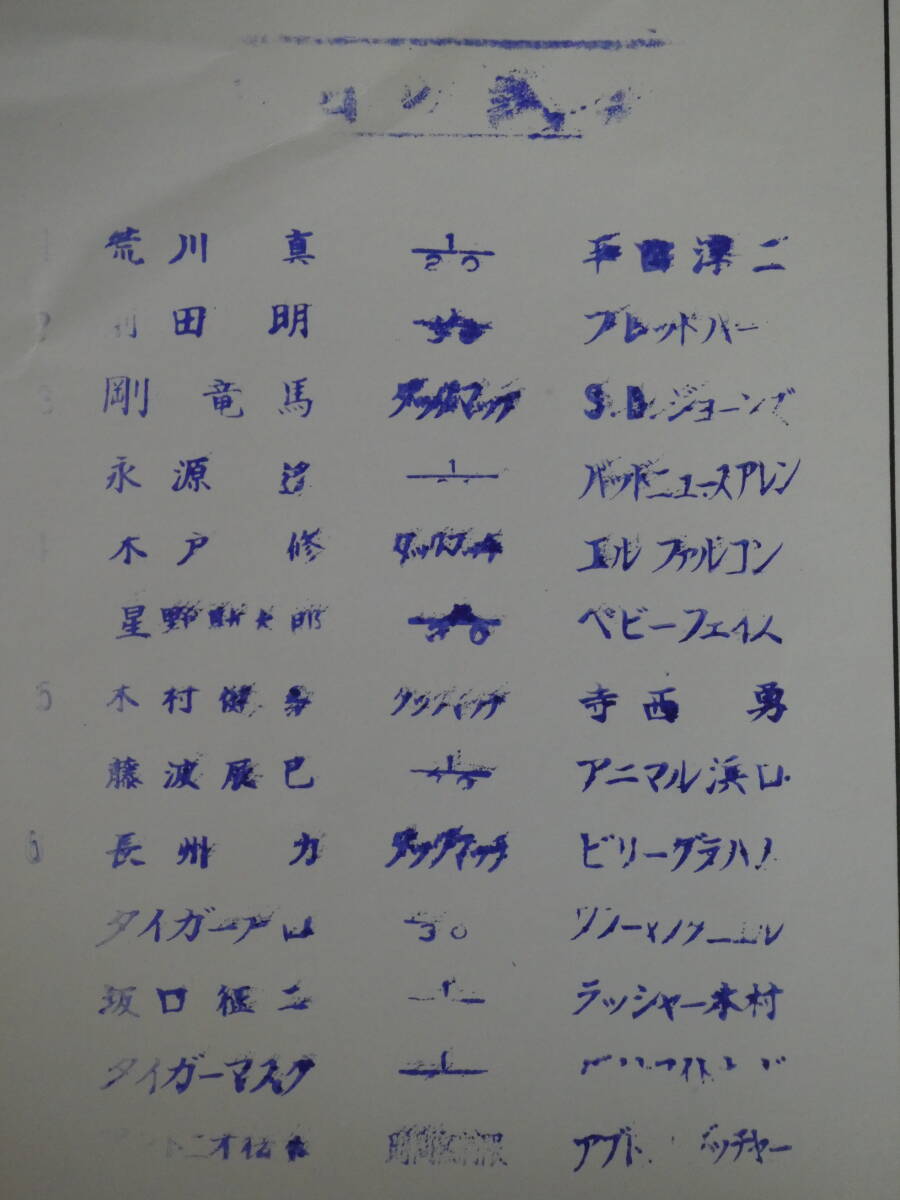 1 荒川 真 1/20 平田淳二
2 前田 明 フレッドハー
3 剛 竜馬 タッグマッチ S.D.ジョーンズ
永源 遙 1 バッドニュースアレン
4 木戸 修 タッグマッチ エルファルコン
星野勘太郎 30 ベビーフェイス
5 木村健吾 タッグマッチ 寺西 勇
藤波辰巳 1/45 アニマル浜口
6 長州 力 タッグマッチ ビリーグラハム
タイガー戸口 30
坂口征二 1 ラッシャー木村
タイガーマスク 1
アントニオ猪木 時間無制限 アブト ブッチャー